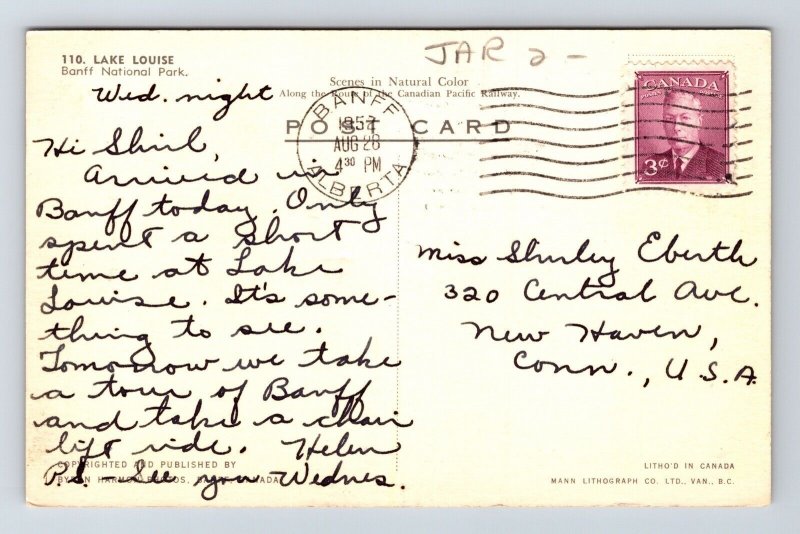 110. LAKE LOUISE
Banff National Park.
JAR 2 -
Scenes in Natural Color
Along the Route of the Canadian Pacific Railway.
POST CARD
BANFF
1957
AUG 28
4 30 PM
ALBERTA
CANADA
3¢
Wed. night
Hi Shirl,
Arrived in
Banff today. Only
spent a short
time at Lake
Louise. It's some-
thing to see.
Tomorrow we take
a tour of Banff
and take a chair
lift ride. Helen
P.S. See you Wednes.
Miss Shirley Eberth
320 Central Ave.
New Haven,
Conn., U.S.A.
COPYRIGHTED AND PUBLISHED BY
BYRON HARMON PHOTOS, BANFF, CANADA
LITHO'D IN CANADA
MANN LITHOGRAPH CO. LTD., VAN., B.C.